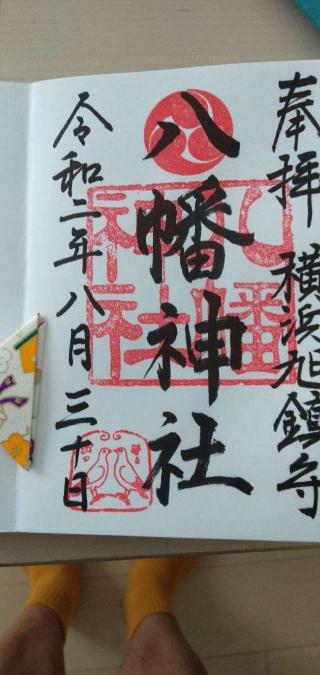 奉拝 横浜旭鎮守
八幡神社
八幡
神社
令和二年八月三十日